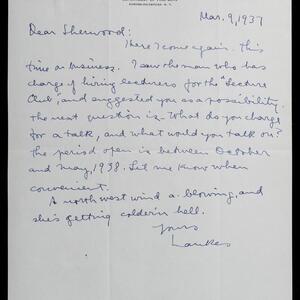 Mar. 9, 1937
Dear Sherwood:
Here I come again. This
time on business. I saw the man who has
charge of hiring lecturers for the "Lecture
Club", and suggested you as a possibility.
The next question is - What do you charge
for a talk, and what would you talk on?
The period open is between October
and May, 1938. Let me know when
convenient.
A north west wind a-blowing, and
she's getting colder'n hell.
Yours
Lankes